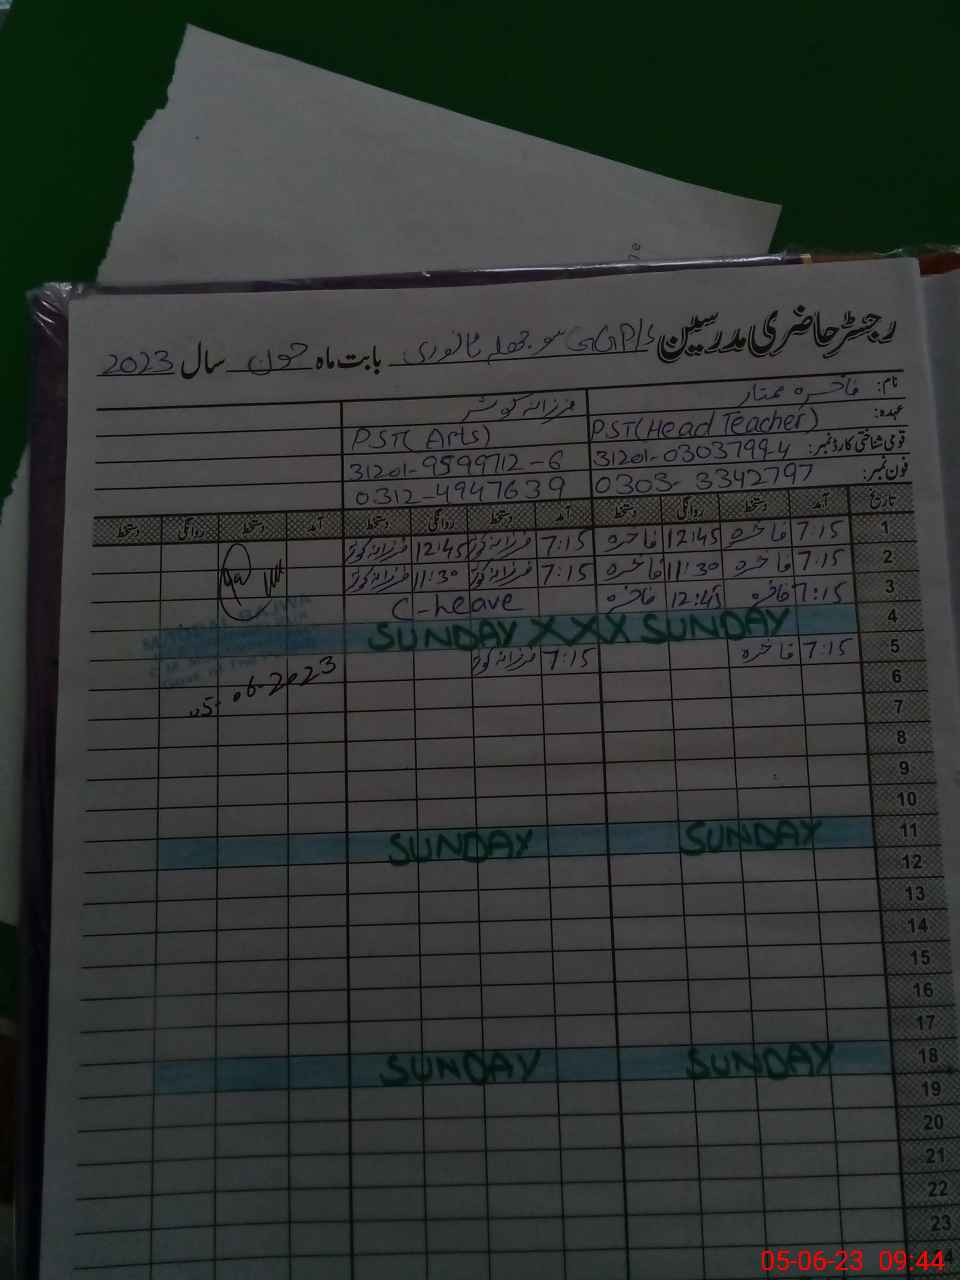 رجسٹر حاضری مدرسین GGP/S بابت ماہ جون سال 2023
نام: فاخرہ ممتاز فرزانہ کوثر
عہدہ: PST(Head Teacher) PST(Arts)
قومی شناختی کارڈ نمبر: 31201-9599712-6
فون نمبر: 0303-3342797 0312-4947639
تاریخ آمد دستخط روانگی دستخط آمد دستخط روانگی دستخط آمد دستخط روانگی دستخط
1 7:15 فاخرہ 12:45 فاخرہ 7:15 فرزانہ کوثر 12:45 فرزانہ کوثر
2 7:15 فاخرہ 11:30 فاخرہ 7:15 فرزانہ کوثر 11:30 فرزانہ کوثر
3 7:15 فاخرہ 12:45 فاخرہ C-Leave
4 SUNDAY XXX SUNDAY
5 7:15 فاخرہ 7:15 فرزانہ کوثر
05-06-2023
6
7
8
9
10
11 SUNDAY SUNDAY
12
13
14
15
16
17
18 SUNDAY SUNDAY
19
20
21
22
23
05-06-23 09:44